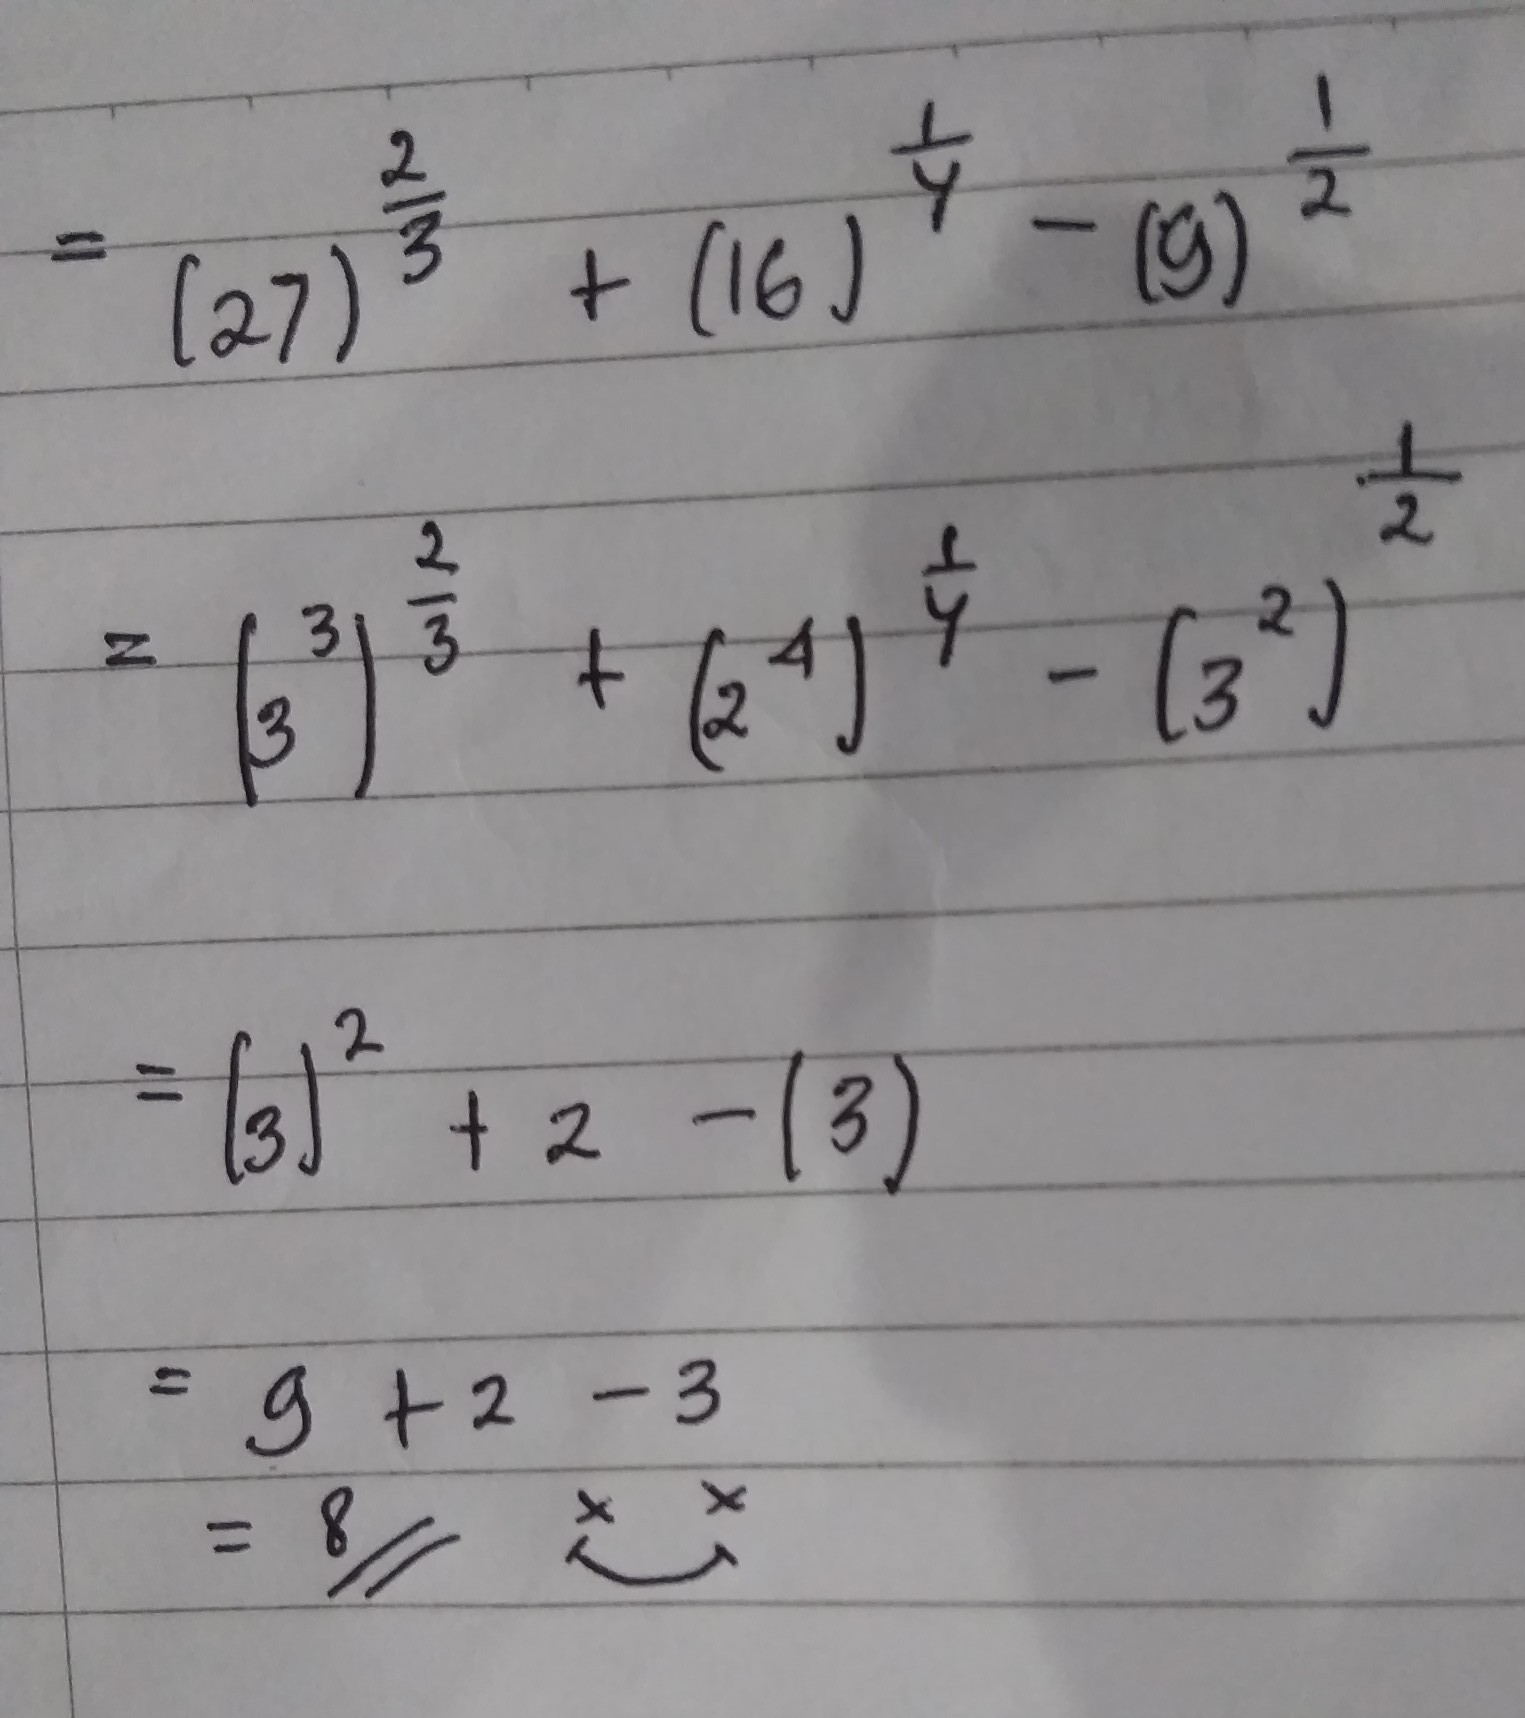 = (27)^(2/3) + (16)^(1/4) - (9)^(1/2)
= (3^3)^(2/3) + (2^4)^(1/4) - (3^2)^(1/2)
= (3)^2 + 2 - (3)
= 9 + 2 - 3
= 8